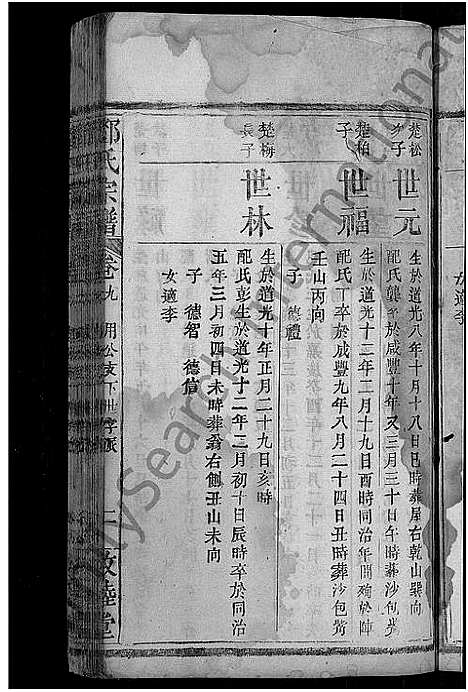 女適李
楚松
子
世元
生於道光八年十月十八日巳時葬屋右乾山巽向
配氏龔於咸豐十年又三月三十日午時葬沙包
楚柏
子
世福
生於道光十二年二月十九日酉時同治年間殉於陣
配氏丁卒於咸豐九年八月二十四日丑時葬沙包嘴
壬山丙向
子 德禮
楚梅
長子
世林
生於道光十年正月二十九日亥時
配氏彭生於道光十二年二月初十日辰時卒於同治
五年三月初四日未時葬翁右側丑山未向
子 德智 德信
女適李
氏宗譜
卷九 用公支下世字派
敦睦堂
MySearch International